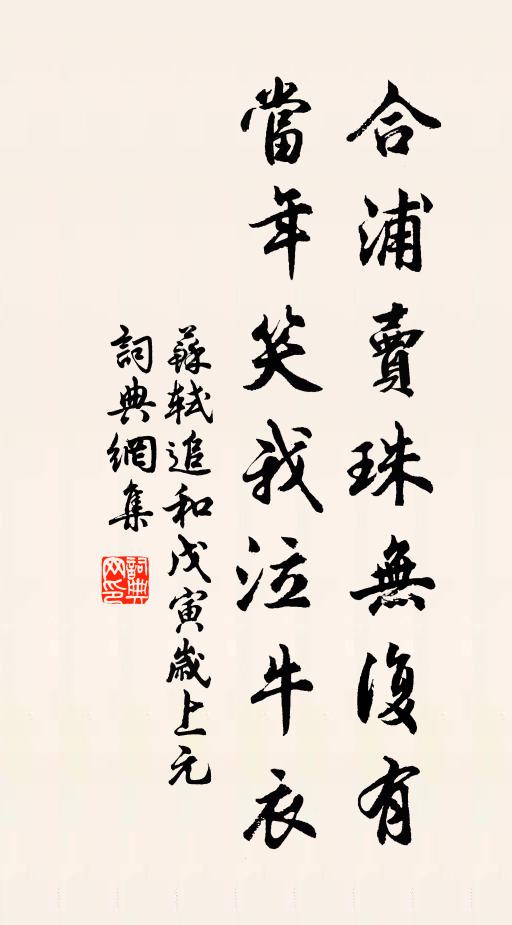 合浦賣珠無復有
當年笑我泣牛衣
蘇軾追和戊寅歲上元
詞典網集
詞典网印